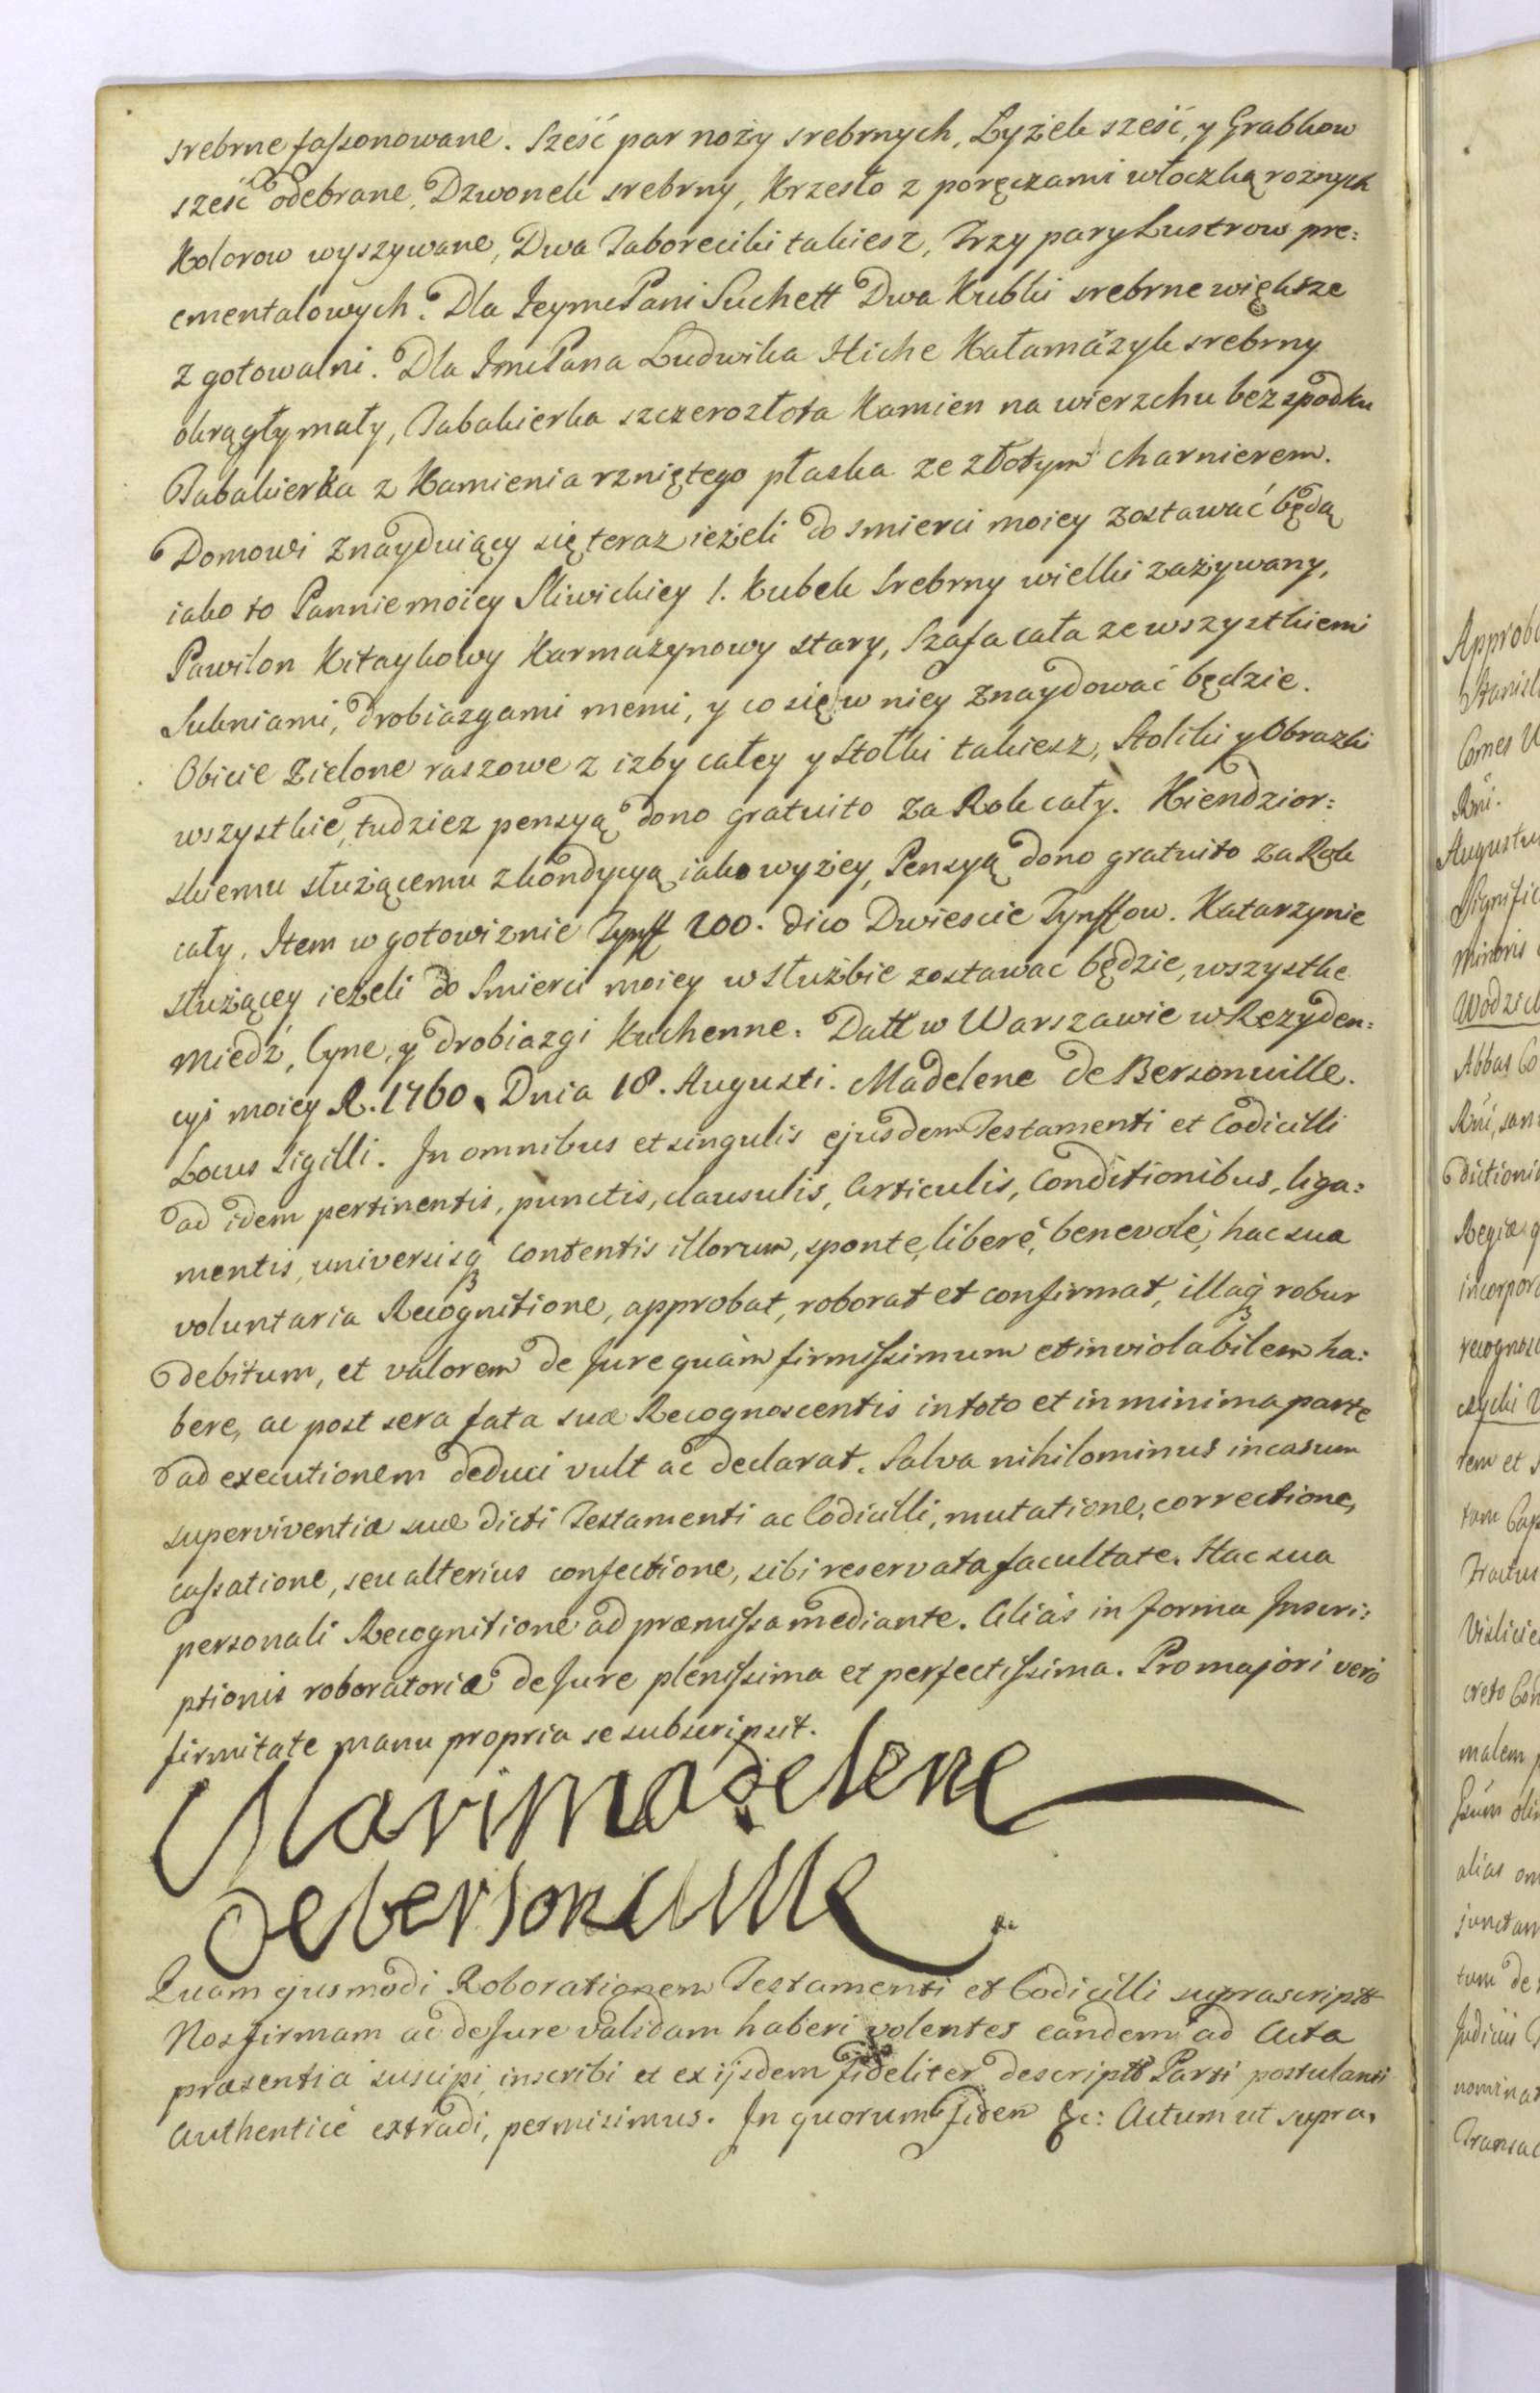 srebrne faſsonowane. Sześć par noży srebrnych, Łyżek sześć, y Grabkow
sześć odebrane, Dzwonek srebrny, Krzesło z poręczami włoczką roznych
Kolorow wyszywane, Dwa Taboreciki takiesz, Trzy pary Lustrow pre:
cmentalowych. Dla JeymcPani Suchett Dwa Kubki srebrne większe
z gotowalni. Dla ImcPana Ludwika Hiche Kałamázyk srebrny
okrągły mały, Tabakierka szczerozłota Kamien na wierzchu bez spodku
Tabakierka z Kamienia rzniętego płaska ze złotym charnierem.
Domowi znayduiący się teraz ieżeli do smierci moiey zostawać będą
iako to Pannie moiey Sliwickiey 1. Kubek Srebrny wielki zażywany,
Pawilon Kitaykowy Karmazynowy stary, Szafa cała ze wszystkiemi
Sukniami, drobiazgami memi, y co się w niey znaydować będzie.
Obicie Zielone raszowe z izby całey y Stołki takiesz, Stoliki y Obrazki
wszystkie, tudziez pensyą dono gratuito za Rok cały. Kiendzior:
skiemu służącemu z kondycyą iako wyżey, Pensyą dono gratuito za Rok
cały. Item w gotowiznie Tynff 200. dico Dwiescie Tynffow. Katarzynie
służącey ieżeli do Smierci moiey w Służbie zostawac będzie, wszystke
Miedź, Cyne, y drobiazgi Kuchenne. Datt w Warszawie w Rezyden:
cyi moiey R. 1760. Dnia 18. Augusti. Madelene de Bersonuille.
Locus Sigilli. In omnibus et singulis ejusdem Testamenti et Codicilli
ad idem pertinentis, punctis, clausulis, Articulis, Conditionibus, liga:
mentis, universisq3 contentis illorum, sponte, liberè, benevolè, hac sua
voluntaria Recognitione, approbat, roborat et confirmat, illaq3 robur
debitum, et valorem de Jure quàm firmiſsimum et inviolabilem ha:
bere, ac post sera fata suæ Recognoscentis in toto et in minima parte
ad executionem deduci vult ac declarat. Salva nihilominus in casum
superviventiæ suæ dicti Testamenti ac Codicilli, mutatione, correctione,
caſsatione, seu alterius confectione, sibi reservata facultate. Hac sua
personali Recognitione ad præmiſsa mediante. Aliàs in forma Inscri:
ptionis roboratoriæ de Jure pleniſsima et perfectiſsima. Pro majori verò
firmitate manu propria se subscripsit.
Marimadelene
debersonuille
Quam ejusmodi Roborationem Testamenti et Codicilli suprascriptt
Nos firmam ac de Jure validam haberi volentes eandem ad Acta
præsentia suscipi, inscribi et ex ijsdem fideliter descriptt Parti postulanti
authenticè extradi, permisimus. In quorum fidem &c: Actum ut supra.
Approb
Comes
Rnī.
Augustu
Signific
Minoris
Abbas Co
dictioni
Regiæ q
incorpor
recognos
tem et
tum Cap
Tractus
Vislicie
creto Con
malem
alias om
junctam
tum de
Judicii
nominat
Transac